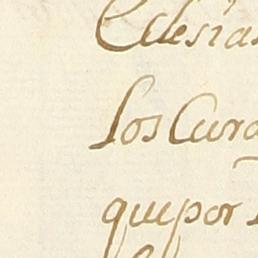 Eclesias
los Cura
quepor